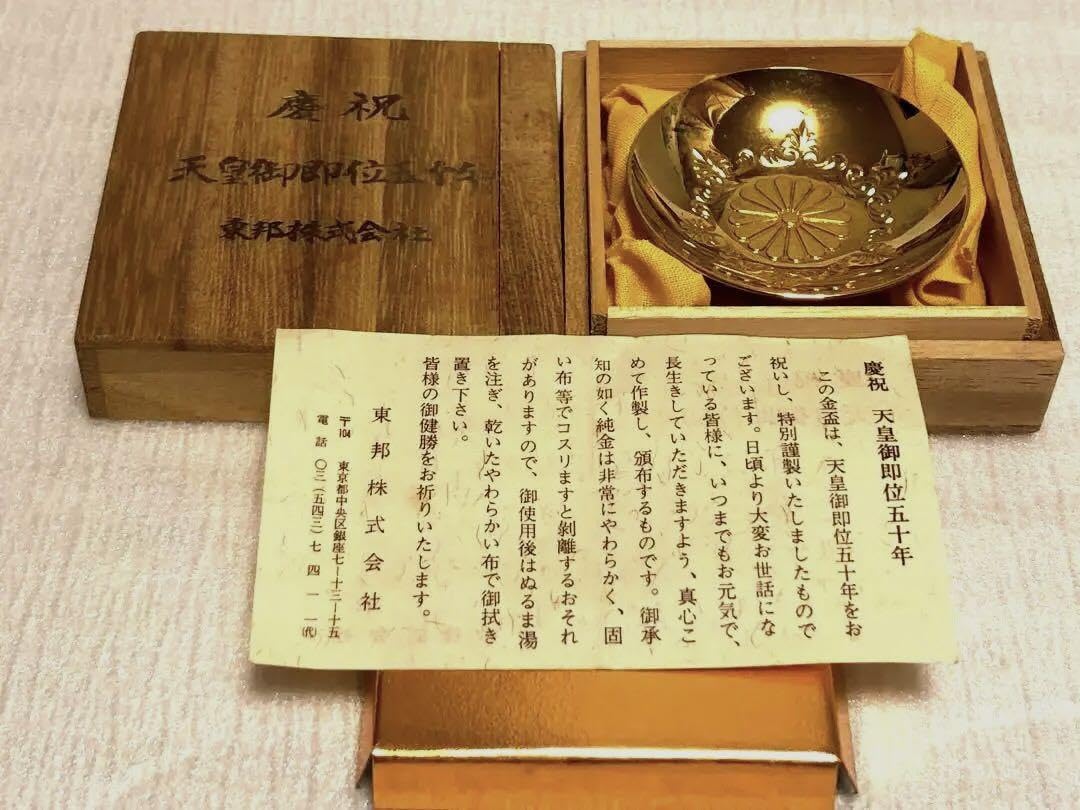 慶祝
天皇御即位五十年
東邦株式会社
慶祝　天皇御即位五十年
この金盃は、天皇御即位五十年をお
祝いし、特別謹製いたしましたもので
ございます。日頃より大変お世話にな
っている皆様に、いつまでもお元気で、
長生きしていただきますよう、真心こ
めて作製し、頒布するものです。御承
知の如く純金は非常にやわらかく、固
い布等でコスリますと剝離するおそれ
がありますので、御使用後はぬるま湯
を注ぎ、乾いたやわらかい布で御拭き
置き下さい。
皆様の御健勝をお祈りいたします。
東邦株式会社
〒104　東京都中央区銀座七ー十三ー十五
電話　〇三（五四三）七四一一（代）